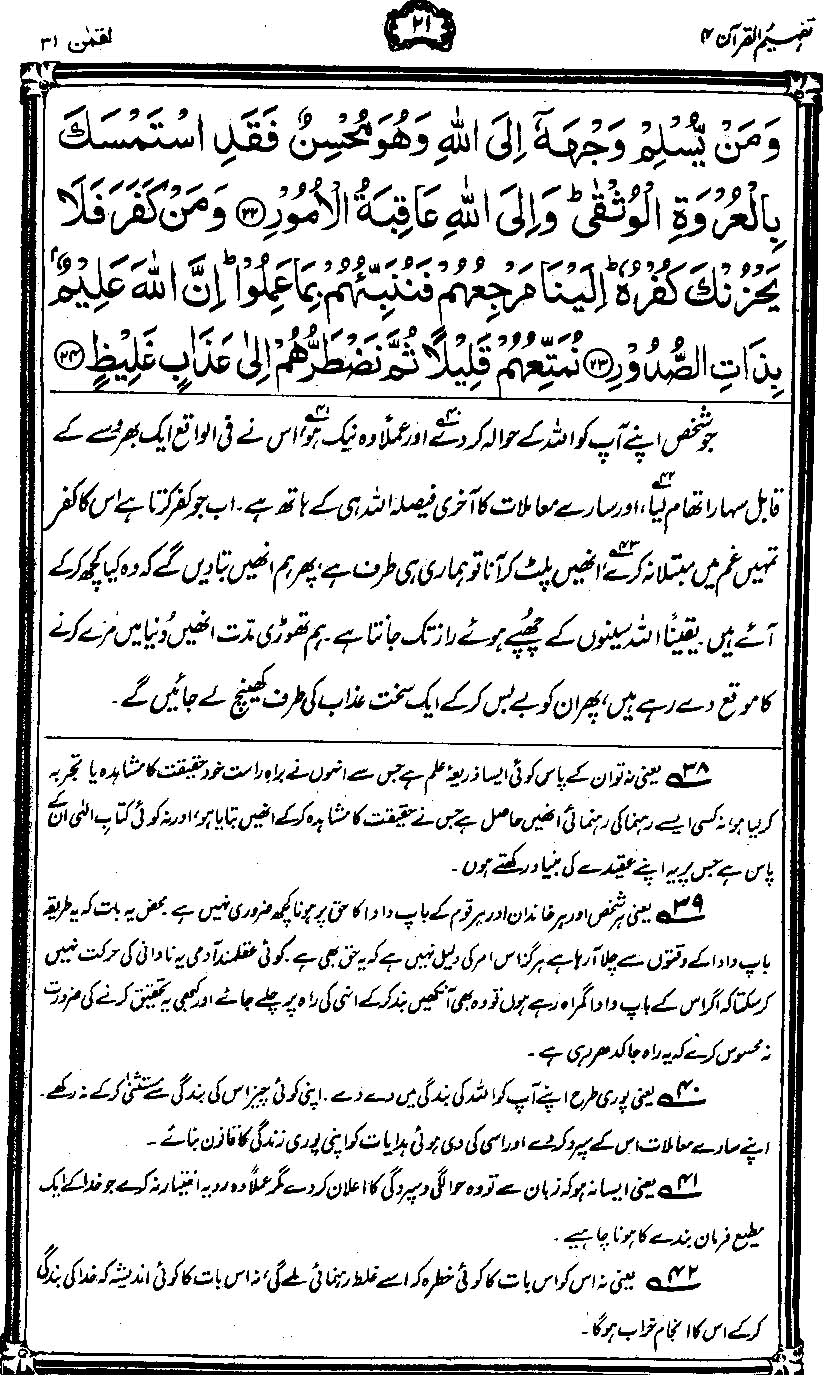 تفہیم القرآن ۴
۲۱
لقمٰن ۳۱
وَمَنْ يُّسْلِمْ وَجْهَهٗٓ اِلَى اللّٰهِ وَهُوَ مُحْسِنٌ فَقَدِ اسْتَمْسَكَ
بِالْعُرْوَةِ الْوُثْقٰىؕ وَاِلَى اللّٰهِ عَاقِبَةُ الْاُمُوْرِ ﴿۲۲﴾ وَمَنْ كَفَرَ فَلَا
يَحْزُنْكَ كُفْرُهٗؕ اِلَيْنَا مَرْجِعُهُمْ فَنُنَبِّئُهُمْ بِمَا عَمِلُوْاؕ اِنَّ اللّٰهَ عَلِيْمٌۢ
بِذَاتِ الصُّدُوْرِ ﴿۲۳﴾ نُمَتِّعُهُمْ قَلِيْلًا ثُمَّ نَضْطَرُّهُمْ اِلٰى عَذَابٍ غَلِيْظٍ ﴿۲۴﴾
جو شخص اپنے آپ کو اللہ کے حوالہ کر دے۴۰ اور عملاً وہ نیک ہو،۴۱ اس نے فی الواقع ایک بھروسے کے
قابل سہارا تھام لیا،۴۲ اور سارے معاملات کا آخری فیصلہ اللہ ہی کے ہاتھ ہے۔ اب جو کفر کرتا ہے اس کا کفر
تمہیں غم میں مبتلا نہ کرے،۴۳ انھیں پلٹ کر آنا تو ہماری ہی طرف ہے، پھر ہم انھیں بتا دیں گے کہ وہ کیا کچھ کر کے
آئے ہیں۔ یقیناً اللہ سینوں کے چھپے ہوئے راز تک جانتا ہے۔ ہم تھوڑی مدت انھیں دُنیا میں مزے کرنے
کا موقع دے رہے ہیں، پھر ان کو بے بس کر کے ایک سخت عذاب کی طرف کھینچ لے جائیں گے۔
۳۸ یعنی نہ تو ان کے پاس کوئی ایسا ذریعۂ علم ہے جس سے انہوں نے براہِ راست خود حقیقت کا مشاہدہ یا تجربہ
کر لیا ہو، نہ کسی ایسے رہنما کی رہنمائی انھیں حاصل ہے جس نے حقیقت کا مشاہدہ کر کے انھیں بتایا ہو، اور نہ کوئی کتابِ الٰہی ان کے
پاس ہے جس پر یہ اپنے عقیدے کی بنیاد رکھتے ہوں۔
۳۹ یعنی ہر شخص اور ہر خاندان اور ہر قوم کے باپ دادا کا حق پر ہونا کچھ ضروری نہیں ہے۔ محض یہ بات کہ یہ طریقہ
باپ دادا کے وقتوں سے چلا آ رہا ہے ہرگز اس امر کی دلیل نہیں ہے کہ یہ حق بھی ہے۔ کوئی عقلمند آدمی یہ نادانی کی حرکت نہیں
کر سکتا کہ اگر اس کے باپ دادا گمراہ رہے ہوں تو وہ بھی آنکھیں بند کر کے انہی کی راہ پر چلے جائے اور کبھی یہ تحقیق کرنے کی ضرورت
نہ محسوس کرے کہ یہ راہ جا کدھر رہی ہے۔
۴۰ یعنی پوری طرح اپنے آپ کو اللہ کی بندگی میں دے دے۔ اپنی کوئی چیز اس کی بندگی سے مستثنیٰ کر کے نہ رکھے۔
اپنے سارے معاملات اس کے سپرد کر دے اور اسی کی دی ہوئی ہدایات کو اپنی پوری زندگی کا قانون بنائے۔
۴۱ یعنی ایسا نہ ہو کہ زبان سے تو وہ حوالگی و سپردگی کا اعلان کر دے مگر عملاً وہ رویہ اختیار نہ کرے جو خدا کے ایک
مطیعِ فرمان بندے کا ہونا چاہیے۔
۴۲ یعنی نہ اس کو اس بات کا کوئی خطرہ کہ اسے غلط رہنمائی ملے گی، نہ اس بات کا کوئی اندیشہ کہ خدا کی بندگی
کر کے اس کا انجام خراب ہوگا۔